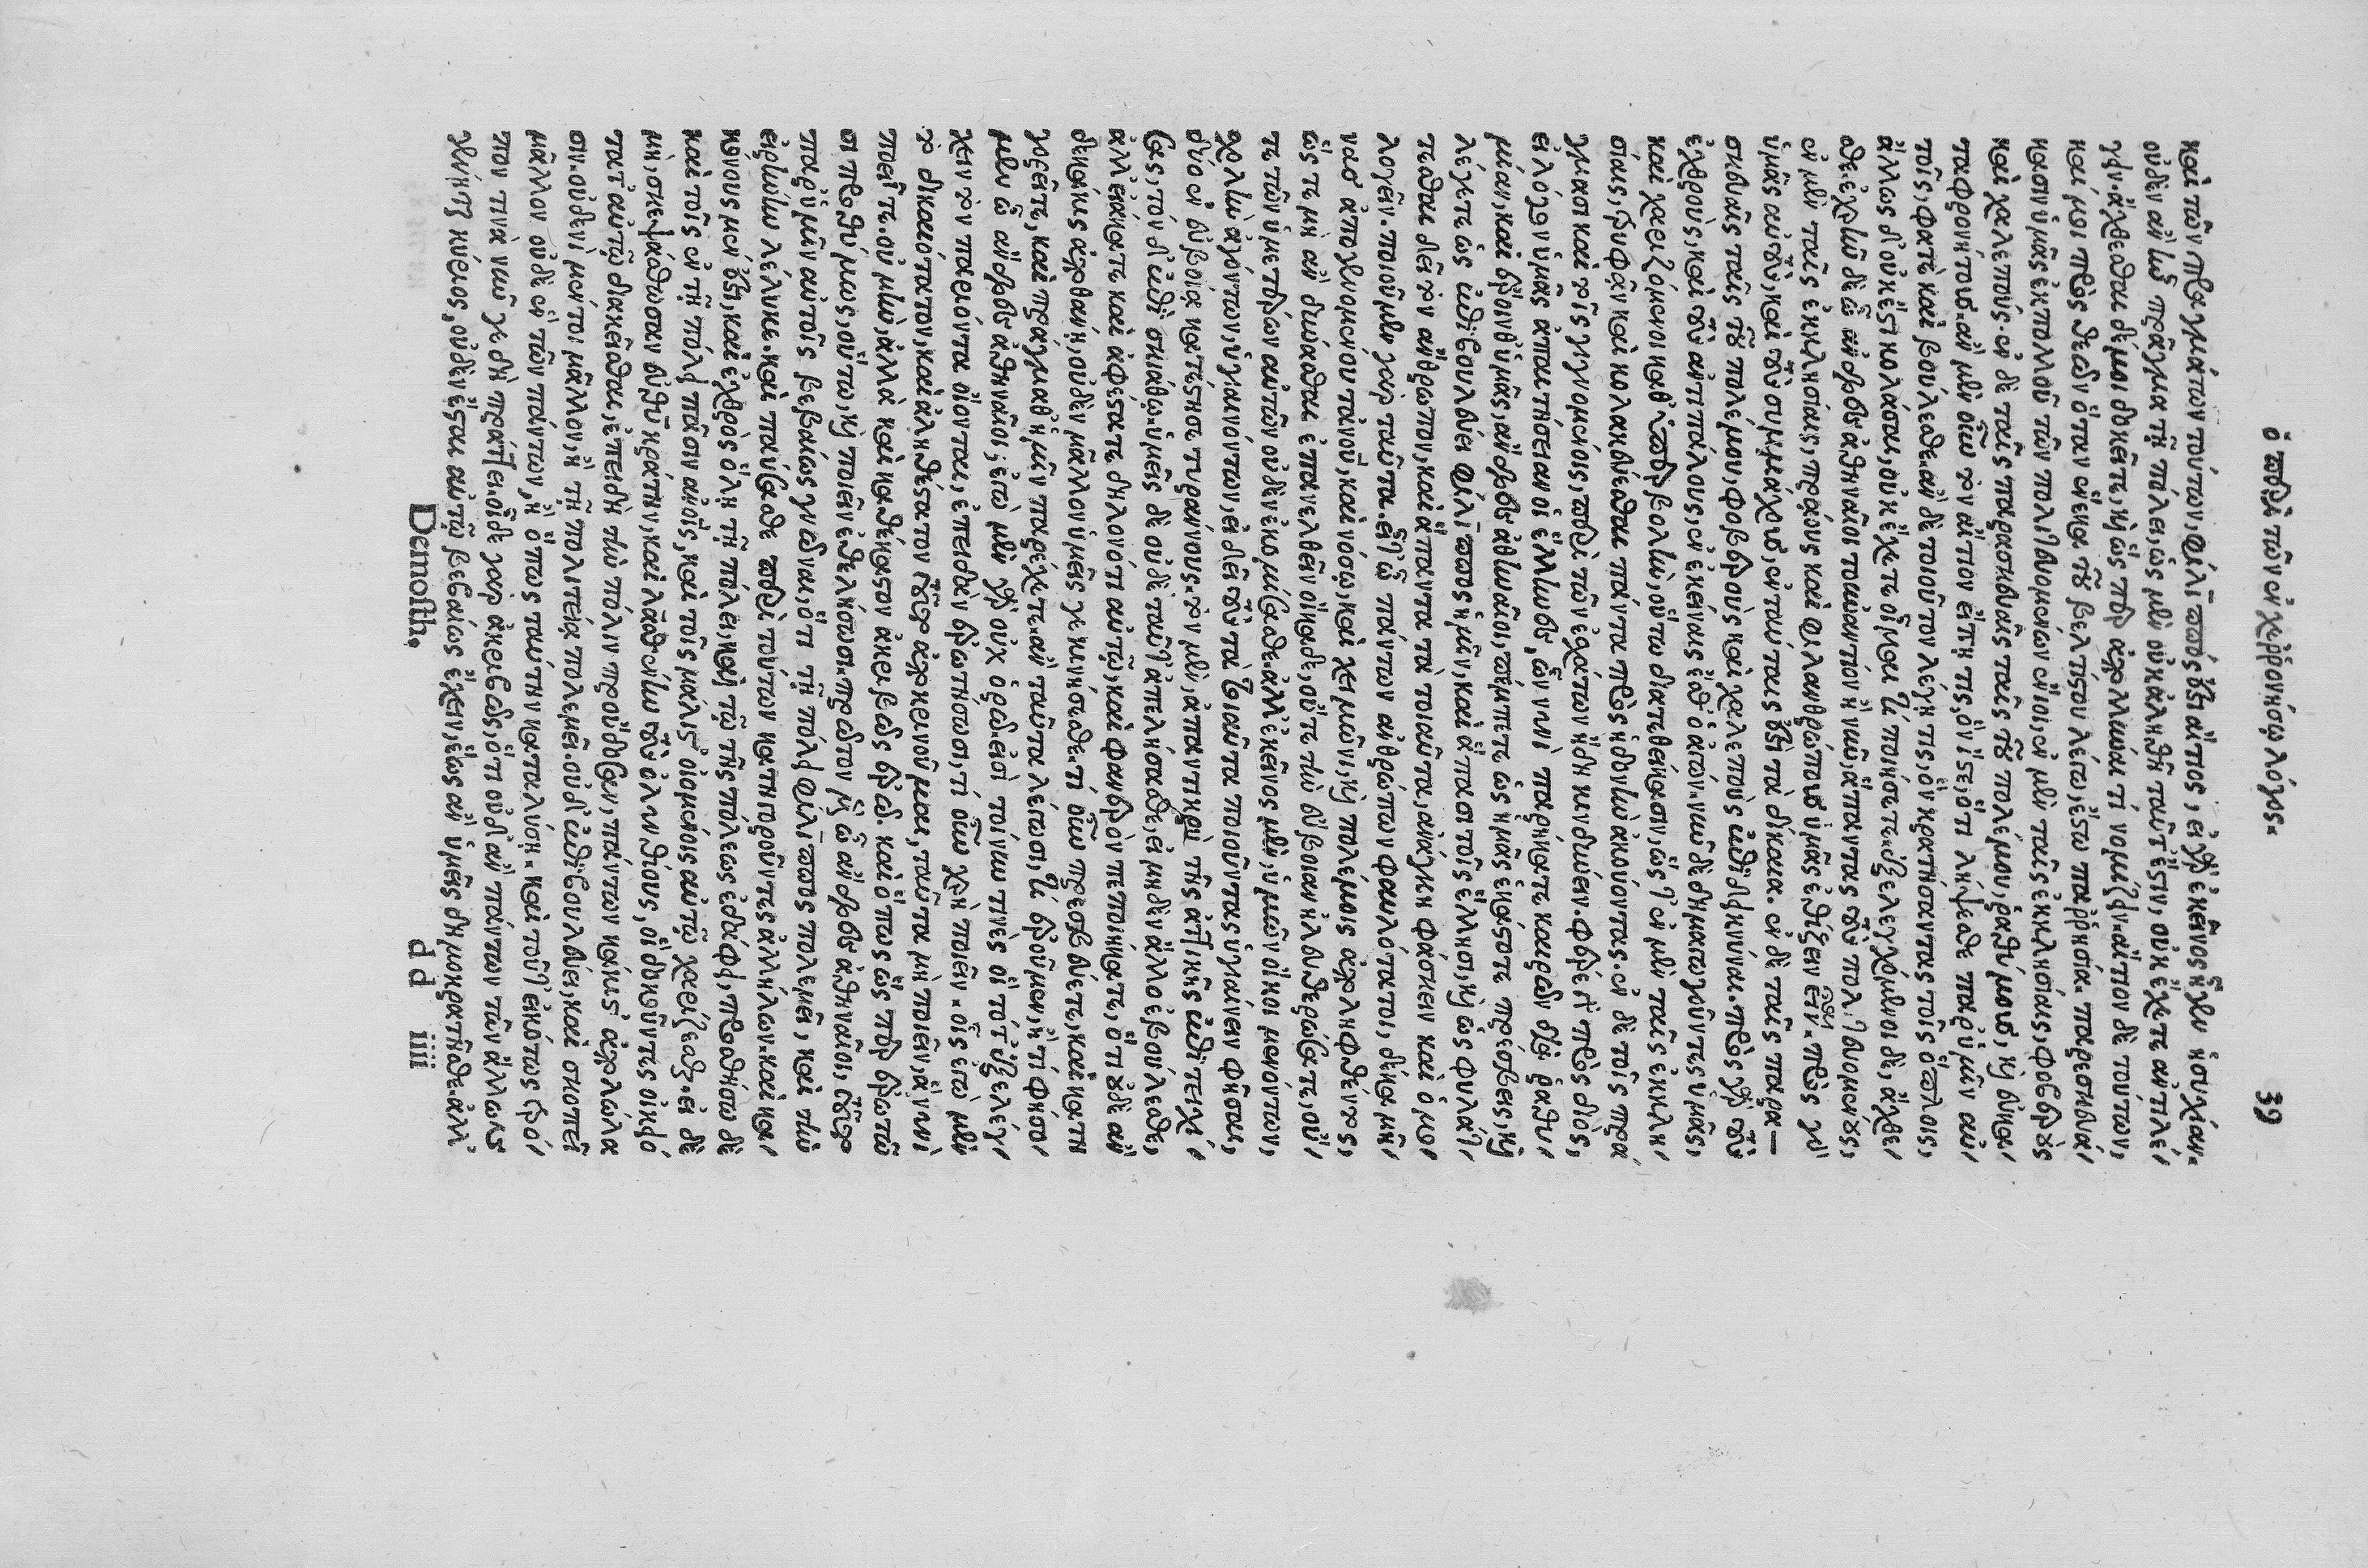 ὁ περὶ τῶν ἐν χερῤονήσῳ λόγος. 39
καὶ τῶν πραγμάτων τούτων, φίλιππός ἐστιν αἴτιος, εἰ γὰρ ἐκεῖνος ἦγεν ἡσυχίαν.
οὐδὲν ἂν ἦν πρᾶγμα τῇ πόλει, ὡς μὲν οὐκ ἀληθῆ ταῦτ' ἐστιν, οὐκ ἔχετε ἀντιλέ
γειν. ἄχθεσθαι δέ μοι δοκεῖτε, καὶ ὥσπερ ἀπολωλέναι τι νομίζειν. αἴτιον δὲ τούτων,
καί μοι πρὸς θεῶν ὅταν εἵνεκα τοῦ βελτίστου λέγω, ἔστω παῤῥησία. παρεσκευά
κασιν ὑμᾶς ἐκ πολλοῦ τῶν πολιτευομένων ἔνιοι, ἐν μὲν ταῖς ἐκκλησίαις, φοβεροὺς
καὶ χαλεπούς. ἐν δὲ ταῖς παρασκευαῖς ταῖς τοῦ πολέμου, ῥαθύμους, καὶ εὐκα
ταφρονήτους. ἂν μὲν οὖν τὸν αἴτιον εἴπῃ τις, ὃν ἴστε, ὅτι λήψεσθε παρ' ὑμῖν αὐ
τοῖς, φατὲ καὶ βούλεσθε. ἂν δὲ τοιοῦτον λέγῃ τις, ὃν κρατήσαντας τοῖς ὅπλοις,
ἄλλως δ' οὐκ ἔστι κολάσαι, οὐκ ἔχετε οἶμαι τί ποιήσετε. ἐξελεγχόμενοι δὲ, ἄχθε
σθε. ἐχρῆν δὲ ὦ ἄνδρες ἀθηναῖοι τοὐναντίον ἢ νῦν, ἅπαντας τοὺς πολιτευομένους,
ἐν μὲν ταῖς ἐκκλησίαις, πράους καὶ φιλανθρώπους ὑμᾶς ἐθίζειν εἶναι. πρὸς γὰρ
ὑμᾶς αὐτοὺς, καὶ τοὺς συμμάχους, ἐν ταύταις ἐστὶ τὰ δίκαια. ἐν δὲ ταῖς παρα-
σκευαῖς ταῖς τοῦ πολέμου, φοβεροὺς καὶ χαλεποὺς ἐπιδεικνύναι. πρὸς γὰρ τοὺς
ἐχθροὺς, καὶ τοὺς ἀντιπάλους, ἐν ἐκείναις ἔσθ' ὁ ἀγών. νῦν δὲ δημαγωγοῦντες ὑμᾶς,
καὶ χαριζόμενοι καθ' ὑπερβολὴν, οὕτω διατεθείκασιν, ὥστ' ἐν μὲν ταῖς ἐκκλη
σίαις, τρυφᾶν καὶ κολακεύεσθαι πάντα πρὸς ἡδονὴν ἀκούοντας. ἐν δὲ τοῖς πρά
γμασι καὶ τοῖς γιγνομένοις, περὶ τῶν ἐσχάτων ἤδη κινδυνεύειν. φέρετε πρὸς διός,
εἰ λόγον ὑμᾶς ἀπαιτήσειαν οἱ ἕλληνες, ὧν νυνὶ παρήκατε καιρῶν διὰ ῥαθυ
μίαν, καὶ ἔροινθ' ὑμᾶς, ἄνδρες ἀθηναῖοι, πέμπετε ὡς ἡμᾶς ἑκάστοτε πρέσβεις, καὶ
λέγετε ὡς ἐπιβουλεύει φίλιππος ἡμῖν, καὶ πᾶσι τοῖς ἕλλησι, καὶ ὡς φυλάτ
τεσθαι δεῖ τὸν ἄνθρωπον, καὶ πάντα τὰ τοιαῦτα, ἀνάγκη φάσκειν καὶ ὁμο
λογεῖν. ποιοῦμεν γὰρ ταῦτα. εἶτ' ὦ πάντων ἀνθρώπων φαυλότατοι, δέκα μῆ
νας ἀπογενομένου καὶ νόσῳ, καὶ χειμῶνι, καὶ πολέμοις ἀποληφθέντος,
ὥστε μὴ ἂν δύνασθαι ἐπανελθεῖν οἴκαδε, οὔτε τὴν εὔβοιαν ἠλευθερώσατε, οὔ
τε τῶν ὑμετέρων αὐτῶν οὐδὲν ἐκομίσασθε. ἀλλ' ἐκεῖνος μὲν, ὑμῶν οἴκοι μενόντων,
σχολὴν ἀγόντων, ὑγιαινόντων, εἰ δεῖ τοὺς τὰ τοιαῦτα ποιοῦντας ὑγιαίνειν φῆσαι,
δύο ἐν εὐβοίᾳ κατέστησε τυράννους. τὸν μὲν, ἀπαντικρὺ τῆς ἀττικῆς ἐπιτειχί
σας, τὸν δ' ἐπὶ σκιάθῳ. ὑμεῖς δὲ οὐδὲ ταῦτ' ἀπελύσασθε, εἰ μηδὲν ἄλλο ἐβούλεσθε,
ἀλλ' εἰάκατε καὶ ἀφέστατε δηλονότι αὐτῷ, καὶ φανερὸν πεποιήκατε, ὅτι οὐδὲ ἂν
δεκάκις ἀποθάνῃ, οὐδὲν μᾶλλον ὑμεῖς γε κινήσεσθε. τί οὖν πρεσβεύετε, καὶ κατη
γορεῖτε, καὶ πράγμαθ' ἡμῖν παρέχετε. ἂν ταῦτα λέγωσι, τί ἐροῦμεν, ἢ τί φήσο
μεν ὦ ἄνδρες ἀθηναῖοι; ἐγὼ μὲν γὰρ οὐχ ὁρῶ. εἰσὶ τοίνυν τινὲς οἳ τότ' ἐξελέγ
χειν τὸν παριόντα οἴονται, ἐπειδὰν ἐρωτήσωσι, τί οὖν χρὴ ποιεῖν. οἷς ἐγὼ μὲν
τὸ δικαιότατον, καὶ ἀληθέστατον τοῦτο ἀποκρινοῦμαι, ταῦτα μὴ ποιεῖν, ἃ νυνὶ
ποιεῖτε. οὐ μὴν, ἀλλὰ καὶ καθέκαστον ἀκριβῶς ἐρῶ. καὶ ὅπως ὥσπερ ἐρωτῶ
σι προθύμως, οὕτω, καὶ ποιεῖν ἐθελήσωσι. πρῶτον μὲν ὦ ἄνδρες ἀθηναῖοι, τοῦτο
παρ' ὑμῖν αὐτοῖς βεβαίως γνῶναι, ὅτι τῇ πόλει φίλιππος πολεμεῖ, καὶ τὴν
εἰρήνην λέλυκε. καὶ παύσασθε περὶ τούτων κατηγοροῦντες ἀλλήλων. καὶ κα
κόνους μέν ἐστι, καὶ ἐχθρὸς ὅλῃ τῇ πόλει, καὶ τῷ τῆς πόλεως ἐδάφει, προσθήσω δὲ
καὶ τοῖς ἐν τῇ πόλει πᾶσιν καὶ τοῖς μάλιστ' οἰομένοις αὐτῷ χαρίζεσθαι. εἰ δὲ
μὴ, σκεψάσθωσαν εὐθυκράτην, καὶ λασθένην τοὺς ὀλυνθίους, οἳ δοκοῦντες οἰκειό
τατ' αὐτῷ διακεῖσθαι, ἐπειδὴ τὴν πόλιν προὔδοσαν, πάντων κάκιστ' ἀπολώλα
σιν. οὐδενὶ μέντοι μᾶλλον, ἢ τῇ πολιτείᾳ πολεμεῖ. οὐδ' ἐπιβουλεύει, καὶ σκοπεῖ
μᾶλλον οὐδὲν τῶν πάντων, ἢ ὅπως ταύτην καταλύσῃ. καὶ τοῦτ' εἰκότως τρό
πον τινὰ νῦν γε δὴ πράττει. οἶδε γὰρ ἀκριβῶς, ὅτι οὐδ' ἂν πάντων τῶν ἄλλων
γένηται κύριος, οὐδὲν ἔσται αὐτῷ βεβαίως ἔχειν, ἕως ἂν ὑμεῖς δημοκρατῆσθε. ἀλλ'
Demosth. d d iiii